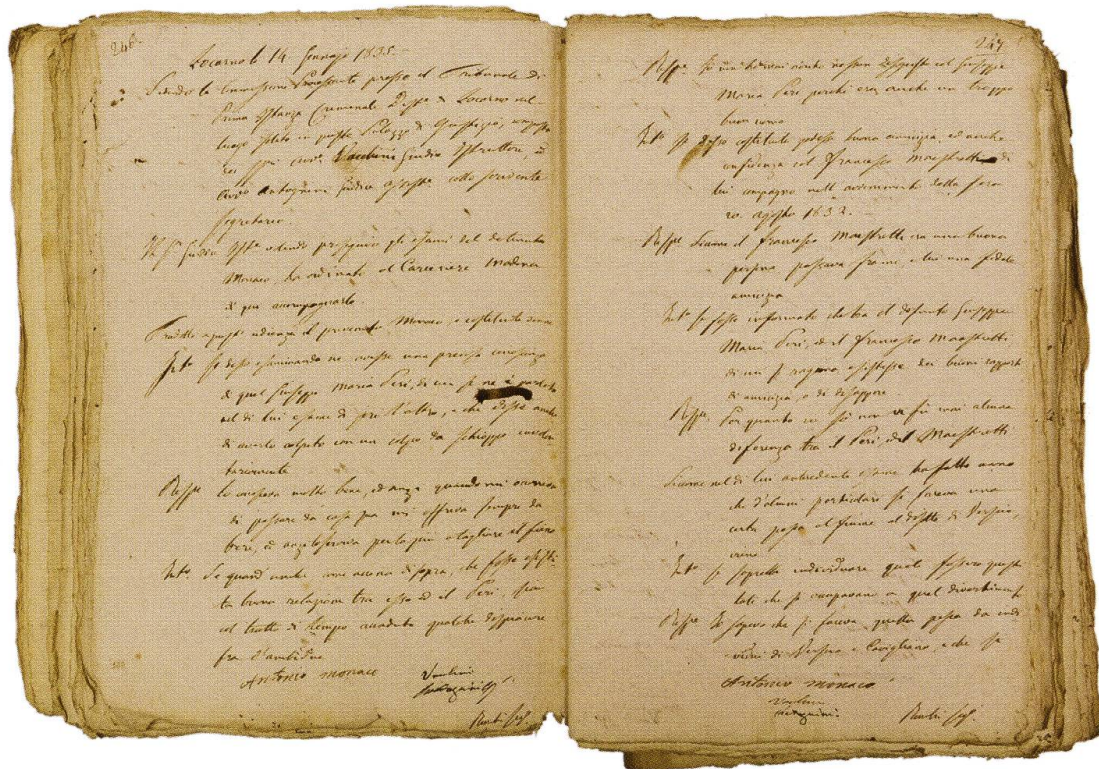 246.
Locarno li 14 Gennajo 1835.
Sedendo la Commissione Processante presso il Tribunale di
Prima Istanza Criminale Distre di Locarno nel
luogo solito in questo Palazzo di Giustizia, composta
dei cive Vacchini Giudice Istruttore, ed
Avvo Antognini Giudice colla presidente
Segretario
Il Sr Giudice Istre volendo proseguire gli esami del detenuto
Monaco, ha ordinato al Carceriere Modena
di qui accompagnarlo.
Tradotto a quest'udienza il prevenuto Monaco, e costituito
Into Se desso esaminando ne avesse una precisa conoscenza
di quel Giuseppe Maria Peri, di cui se ne è parlato
nel di lui esame di jeri l'altro, e che disse anche
di averlo colpito con un colpo da schioppo involon
tariamente
Rispe Lo conosceva molto bene, ed anzi quando mi occorreva
di passare da casa sua mi offriva sempre da
bere, ed
Into Se quand'anche come accenna di sopra, che fosse esisti
ta buona relazione tra esso ed il Peri, sia
nel tratto di tempo accaduto qualche dispiacere
fra d'ambidue
Antonio Monaco
Vacchini
Antognini
247
Rispe Io non ho mai avuto nessun col Giuseppe
Maria Peri perchè era anche un troppo
buon uomo
Into Se desso costituito godesse buona amicizia, ed anche
confidenza col Francesco Maestretti di
lui compagno nell'avvenimento della sera
20. agosto 1832.
Rispe Siccome il Francesco Maestretti era una buona
persona passava frame, e lui una fedele
amicizia
Into Se fosse informato che tra il defunto Giuseppe
Maria Peri, ed il Francesco Maestretti
di cui si ragiona esistesse dei buoni rapporti
di amicizia, o di dissapore.
Rispe Per quanto io so non vi fu mai alcuna
diferenza tra il Peri, ed il Maestretti
Siccome nel di lui antecedente esame ha fatto cenno
che d'alcuni particolari si faceva una
certa pesca al fiume al disotto di Verscio,
viene
Into Se saprebbe individuare quali fossero questi
tali che si occupavano a quel divertimento
Rispe Io sapeva che si faceva questa pesca da indi
vidui di Verscio e Cavigliano, e che si
Antonio Monaco
Vacchini
Antognini